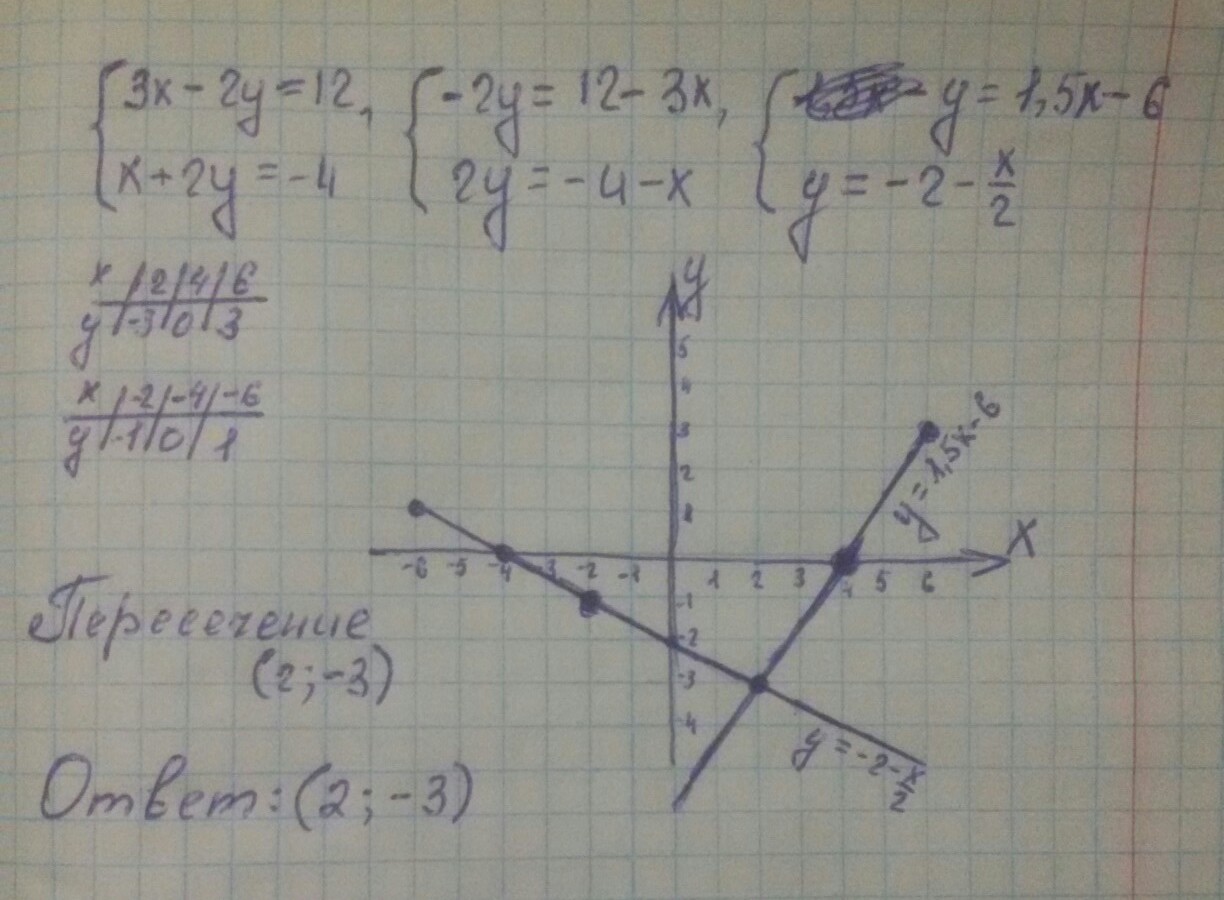 { 3x - 2y = 12, { -2y = 12 - 3x, { y = 1,5x - 6
x + 2y = -4 2y = -4 - x y = -2 - x/2
x | 2 | 4 | 6
y | -3 | 0 | 3
x | -2 | -4 | -6
y | -1 | 0 | 1
y
5
4
3
2
1
y = 1,5x - 6
x
-6 -5 -4 -3 -2 -1 1 2 3 4 5 6
-1
-2
-3
-4
y = -2 - x/2
Пересечение
(2; -3)
Ответ: (2; -3)